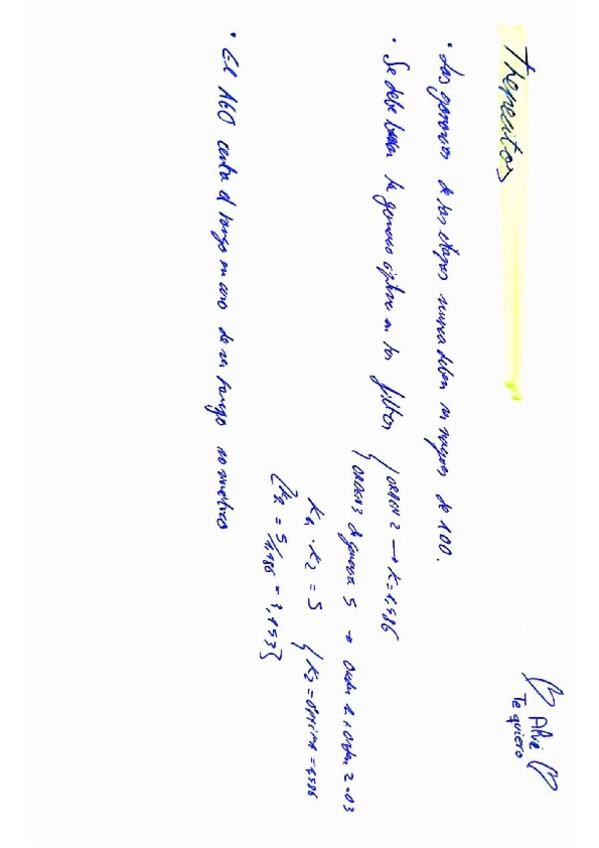 Trepecitos
♡ Alvi ♡
Te quiero
• Las ganancias de las etapas nunca deben ser mayores de 100.
• Se debe buscar la ganancia óptima en los filtros { ORDEN 2 → K=1,586
ORDEN 3 de ganancia 5 → Orden 1 + Orden 2 = O3
K1 · K2 = 5 { K2 = óptima = 1,586
{K1 = 5/1,586 = 3,153}
• El AGO centra el rango en caso de un rango no simétrico